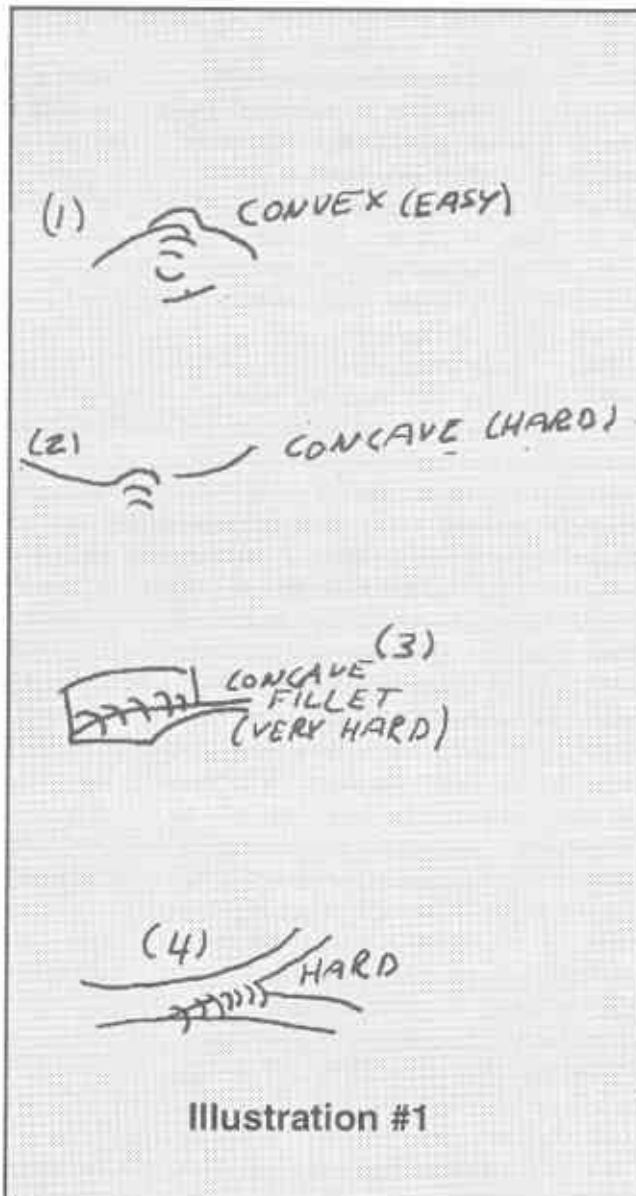 (1) CONVEX (EASY)
(2) CONCAVE (HARD)
(3)
CONCAVE
FILLET
(VERY HARD)
(4)
HARD
Illustration #1